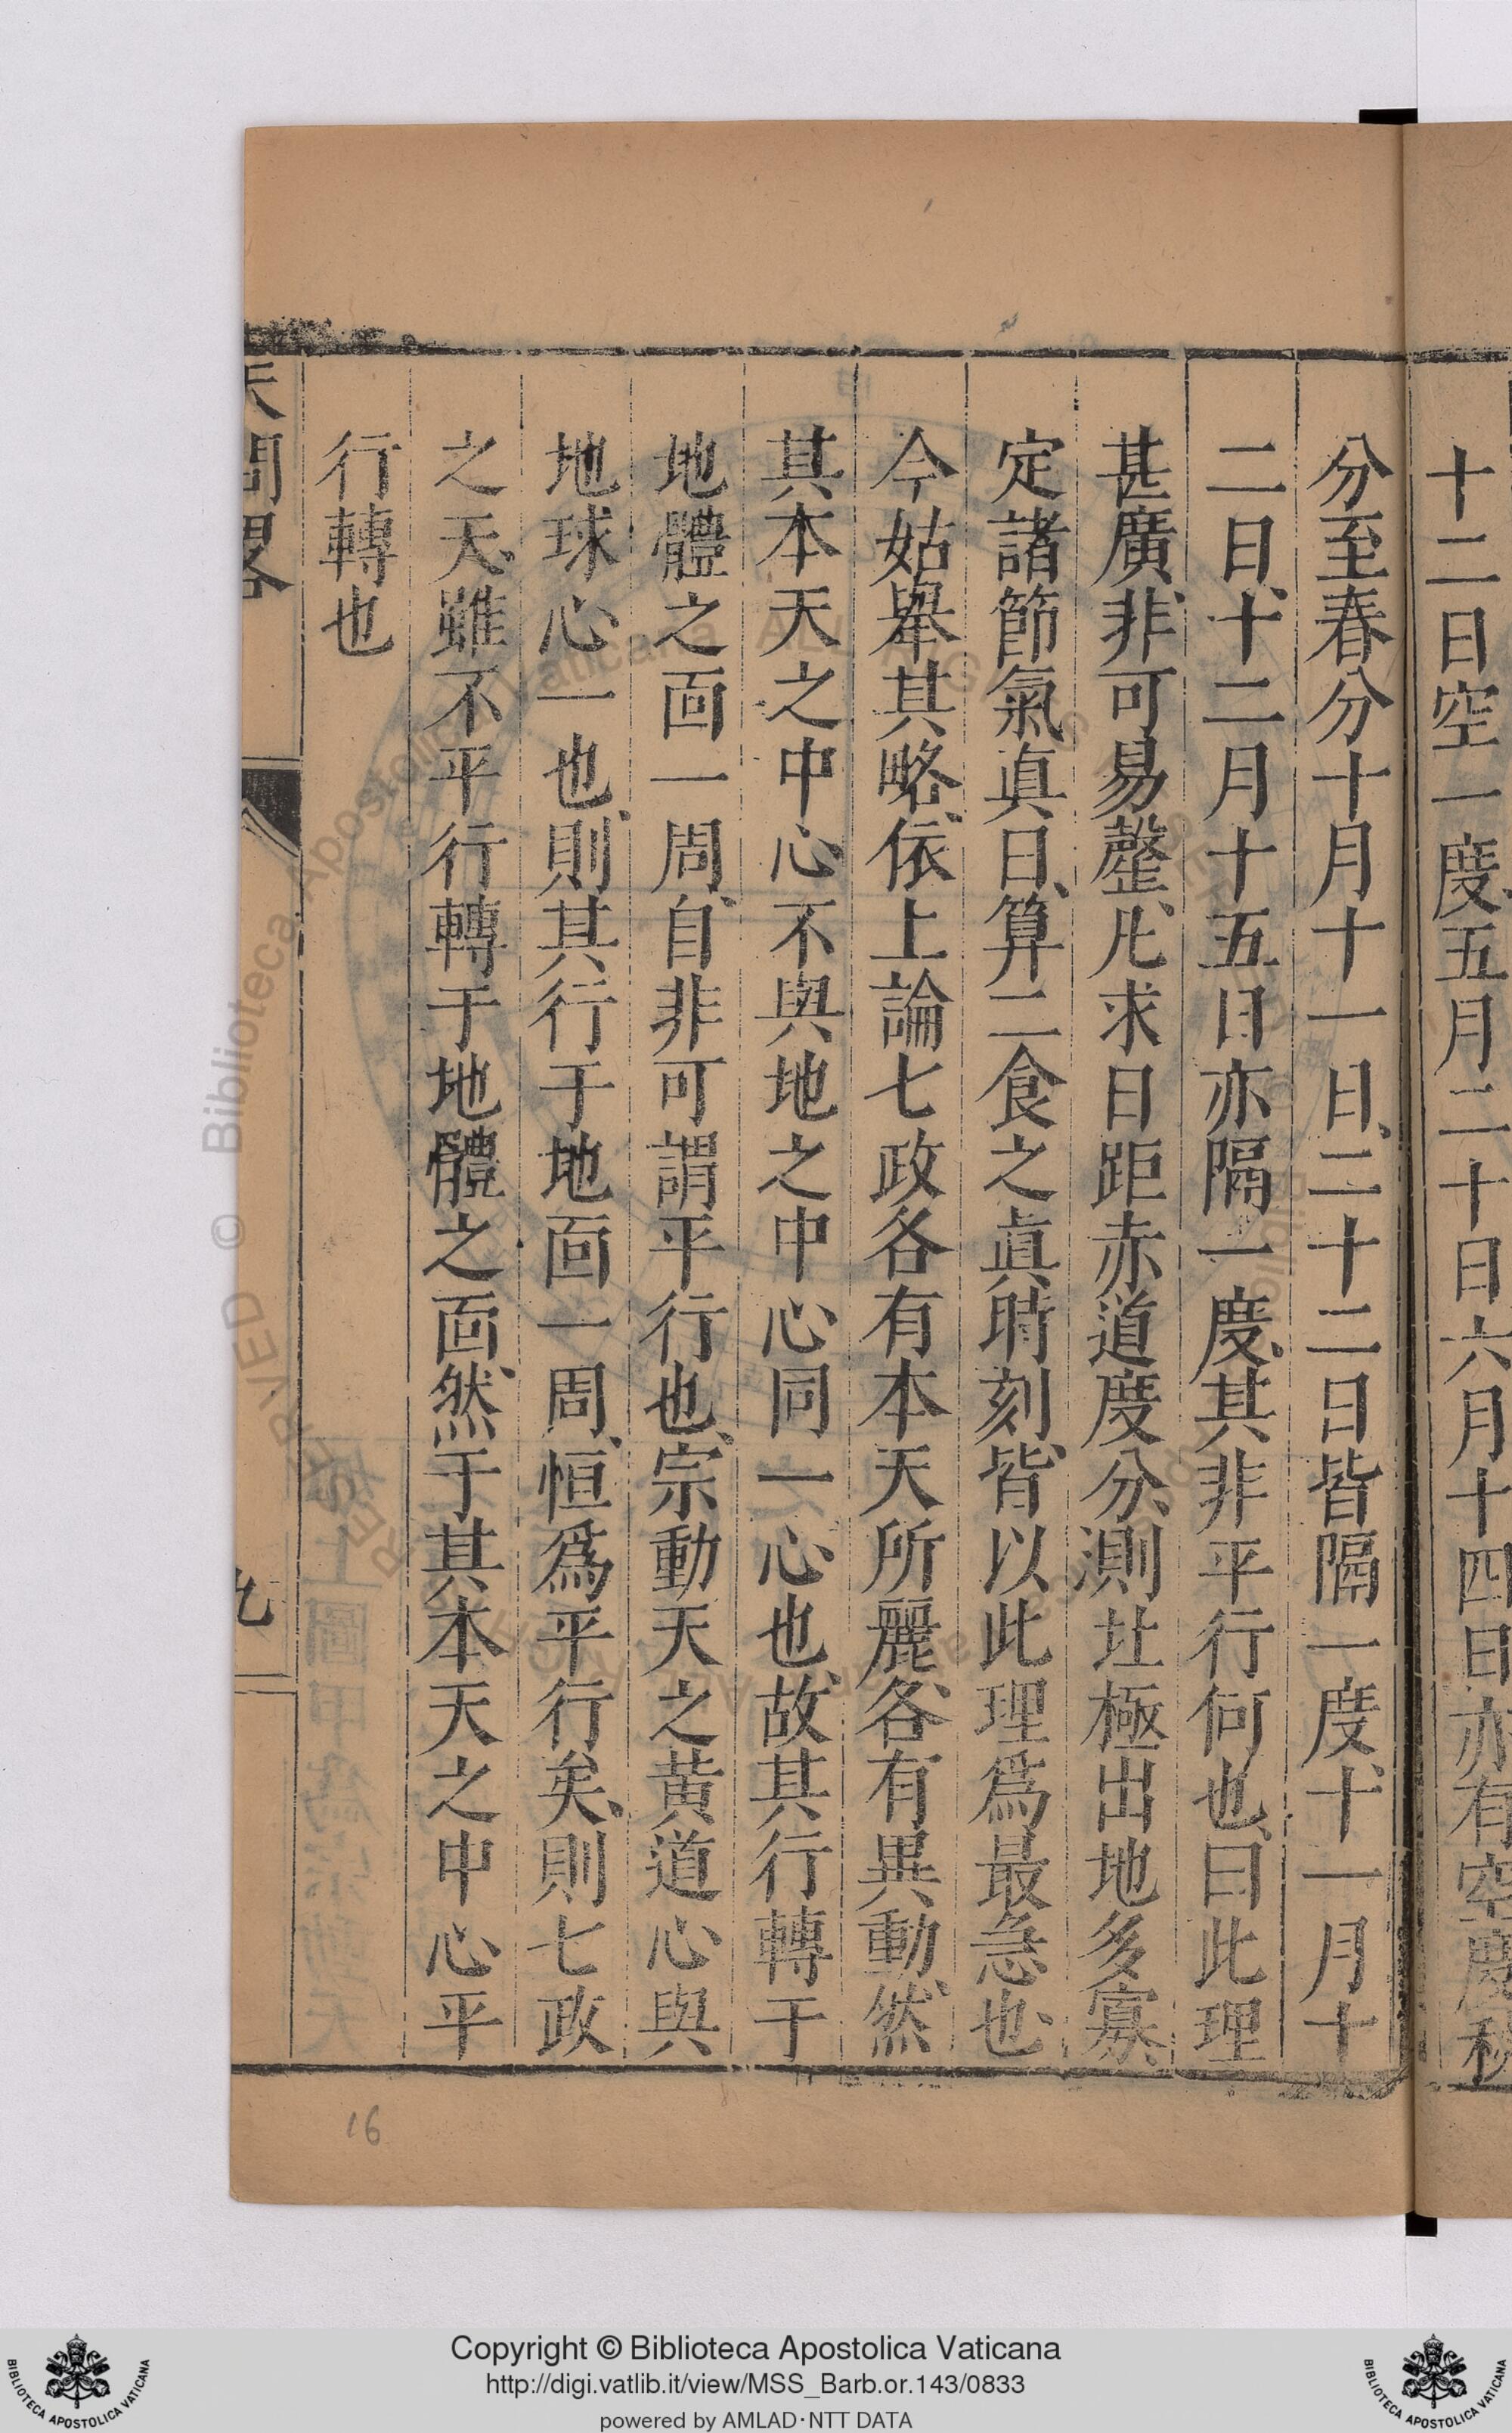 十二日空一度、五月二十日六月十四日亦有空度秋
分至春分十月十一日、二十二日皆隔一度、十一月十
二日、十二月十五日亦隔一度、其非平行何也、曰此理
甚廣、非可易罄、凡求日距赤道度分、測北極出地多寡、
定諸節氣真日、算二食之眞時刻、皆以此理爲最急也、
今姑舉其略、依上論七政各有本天所麗、各有異動、然
其本天之中心不與地之中心同一心也、故其行轉于
地體之面一周、自非可謂平行也、宗動天之黄道心與
地球心一也、則其行于地面一周、恒爲平行矣、則七政
之天、雖不平行轉于地體之面、然于其本天之中心平
行轉也
天問畧
九
16
Biblioteca Apostolica Vaticana
Copyright © Biblioteca Apostolica Vaticana
http://digi.vatlib.it/view/MSS_Barb.or.143/0833
powered by AMLAD·NTT DATA
BIBLIOTECA APOSTOLICA VATICANA
BIBLIOTECA APOSTOLICA VATICANA